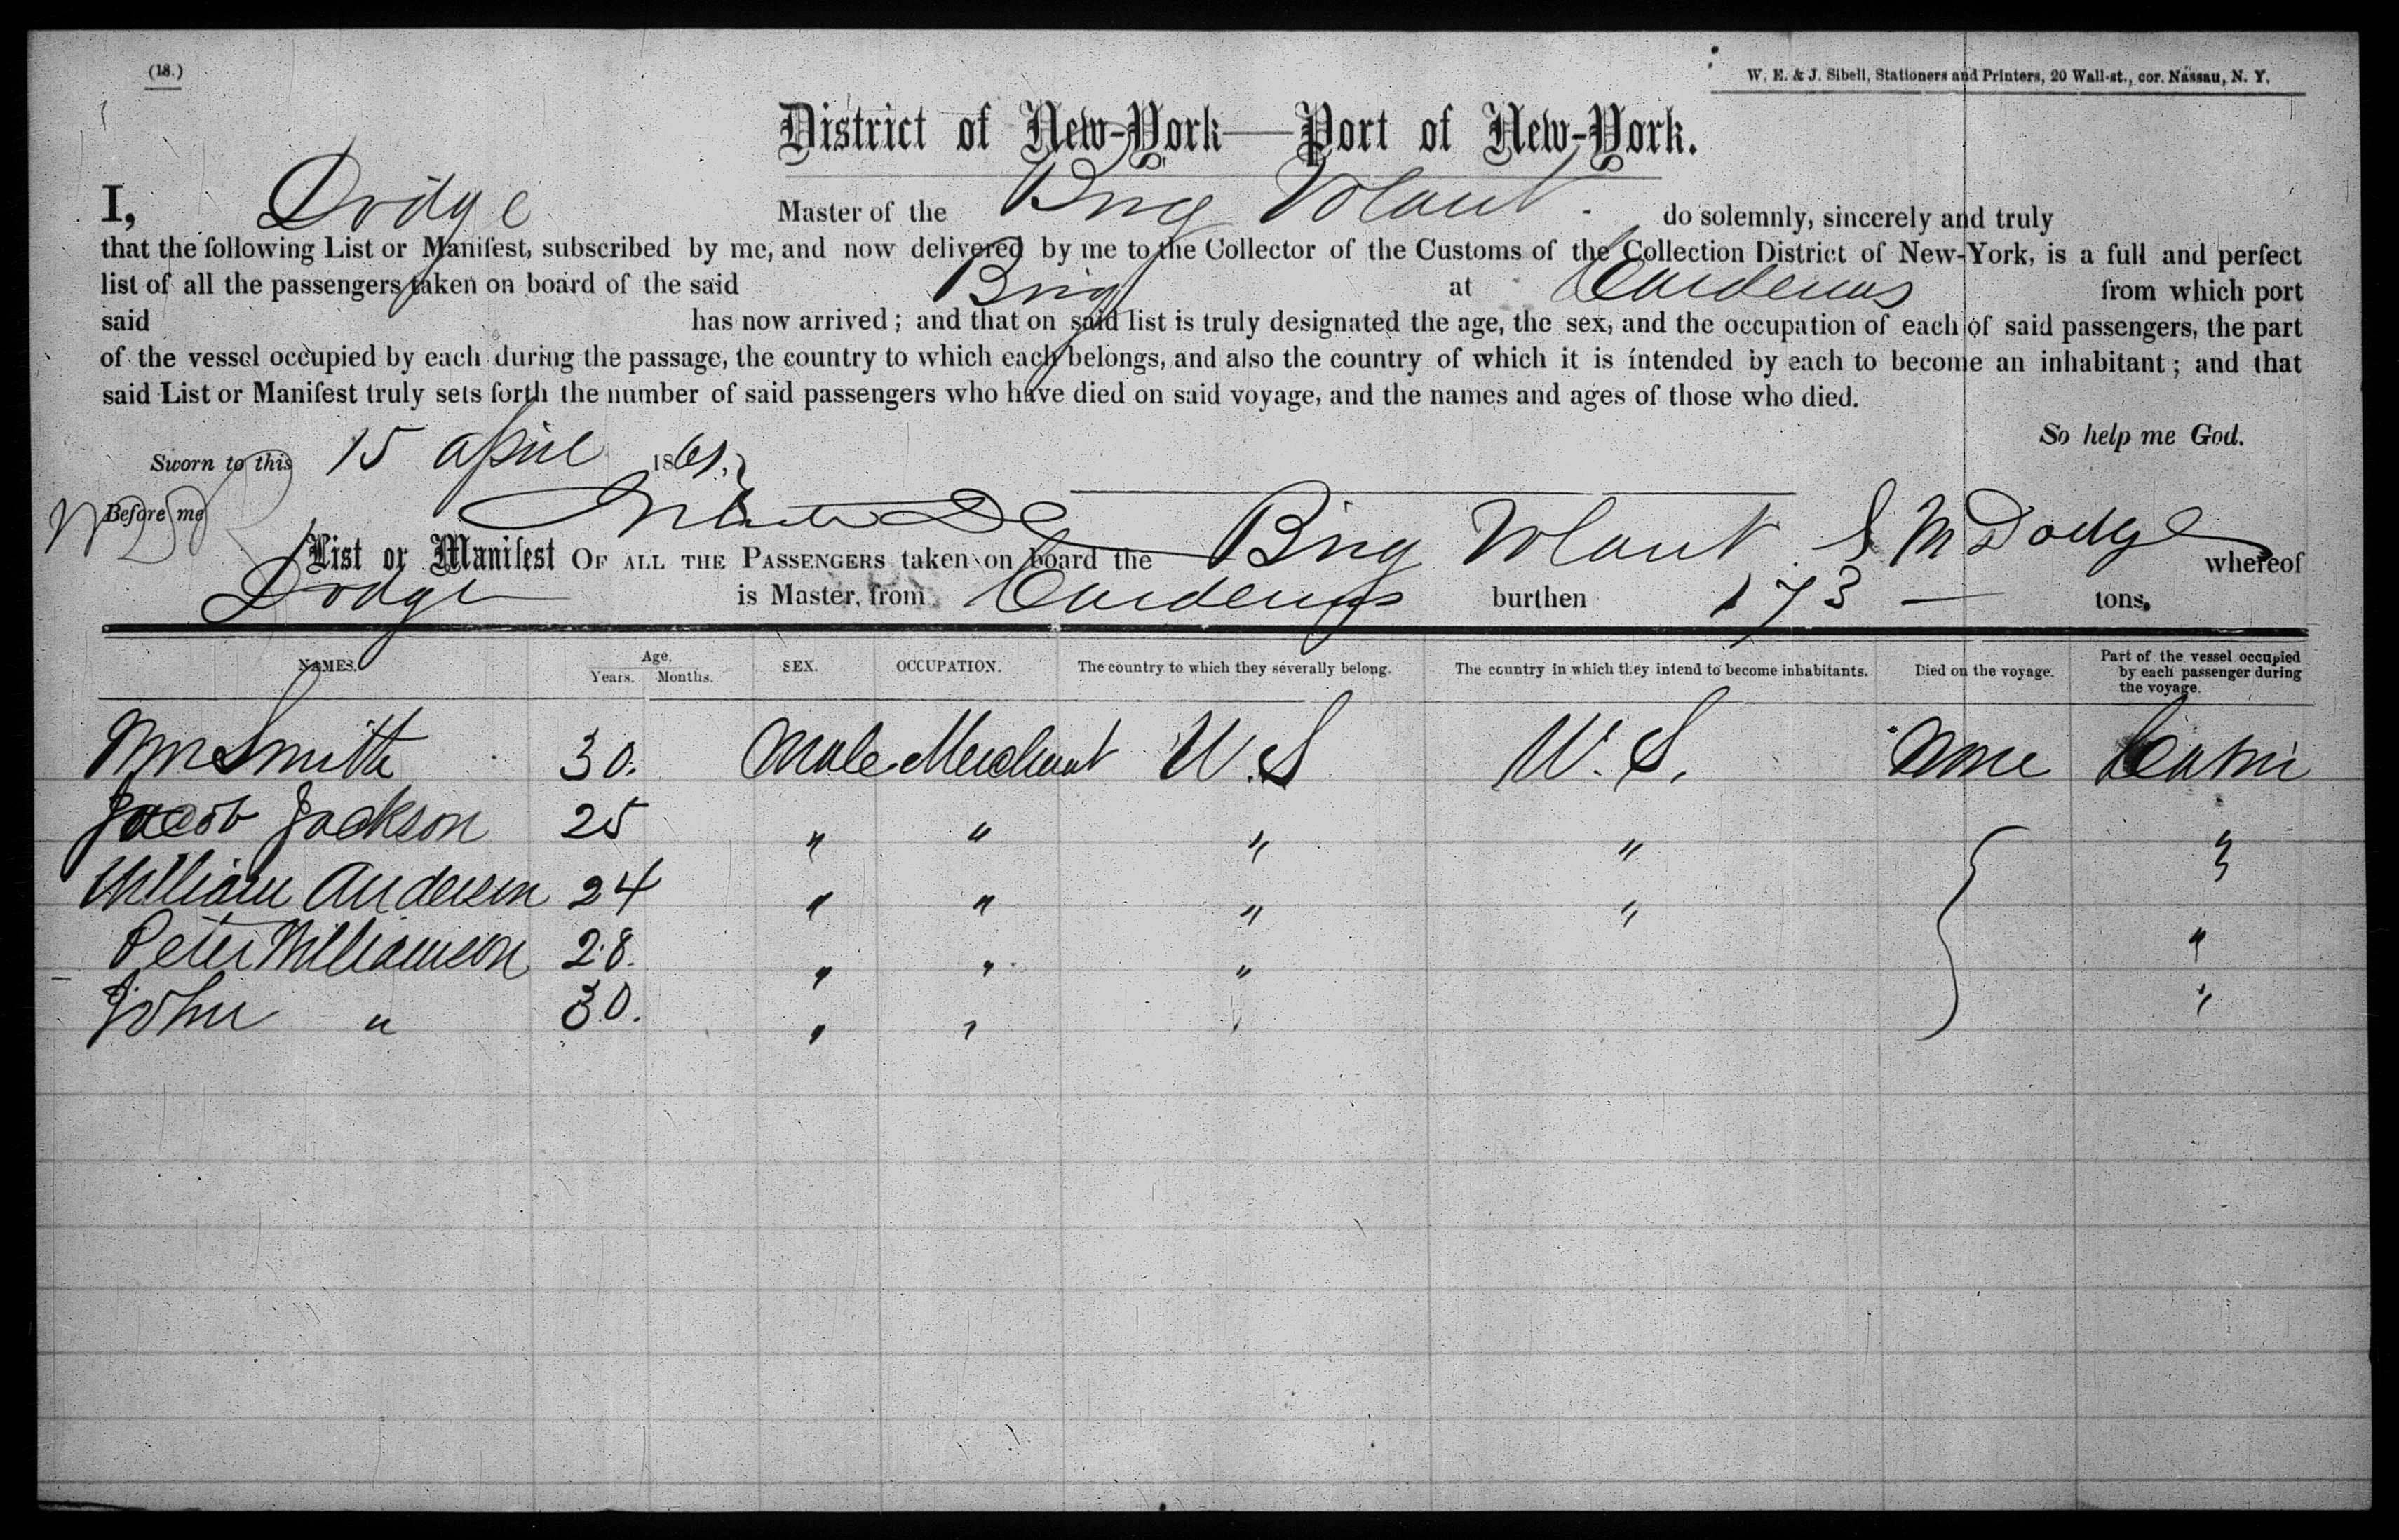 (18.)
W. E. & J. Sibell, Stationers and Printers, 20 Wall-st., cor. Nassau, N. Y.
District of New-York—Port of New-York.
I, Dodge Master of the Brig Volant do solemnly, sincerely and truly
that the following List or Manifest, subscribed by me, and now delivered by me to the Collector of the Customs of the Collection District of New-York, is a full and perfect
list of all the passengers taken on board of the said Brig at Cardenas from which port
said has now arrived; and that on said list is truly designated the age, the sex, and the occupation of each of said passengers, the part
of the vessel occupied by each during the passage, the country to which each belongs, and also the country of which it is intended by each to become an inhabitant; and that
said List or Manifest truly sets forth the number of said passengers who have died on said voyage, and the names and ages of those who died.
So help me God.
Sworn to this 15 April 1861.
Before me
List or Manifest OF ALL THE PASSENGERS taken on board the Brig Volant S M Dodge whereof
Dodge is Master, from Cardenas burthen 173 — tons.
NAMES. Age. Years. Months. SEX. OCCUPATION. The country to which they severally belong. The country in which they intend to become inhabitants. Died on the voyage. Part of the vessel occupied by each passenger during the voyage.
Wm Smith 30. Male Merchant U.S U.S. None Cabin
Jacob Jackson 25 " " " " "
William Anderson 24 " " " "
Peter Williamson 28. " " " "
John " 30. " " " "